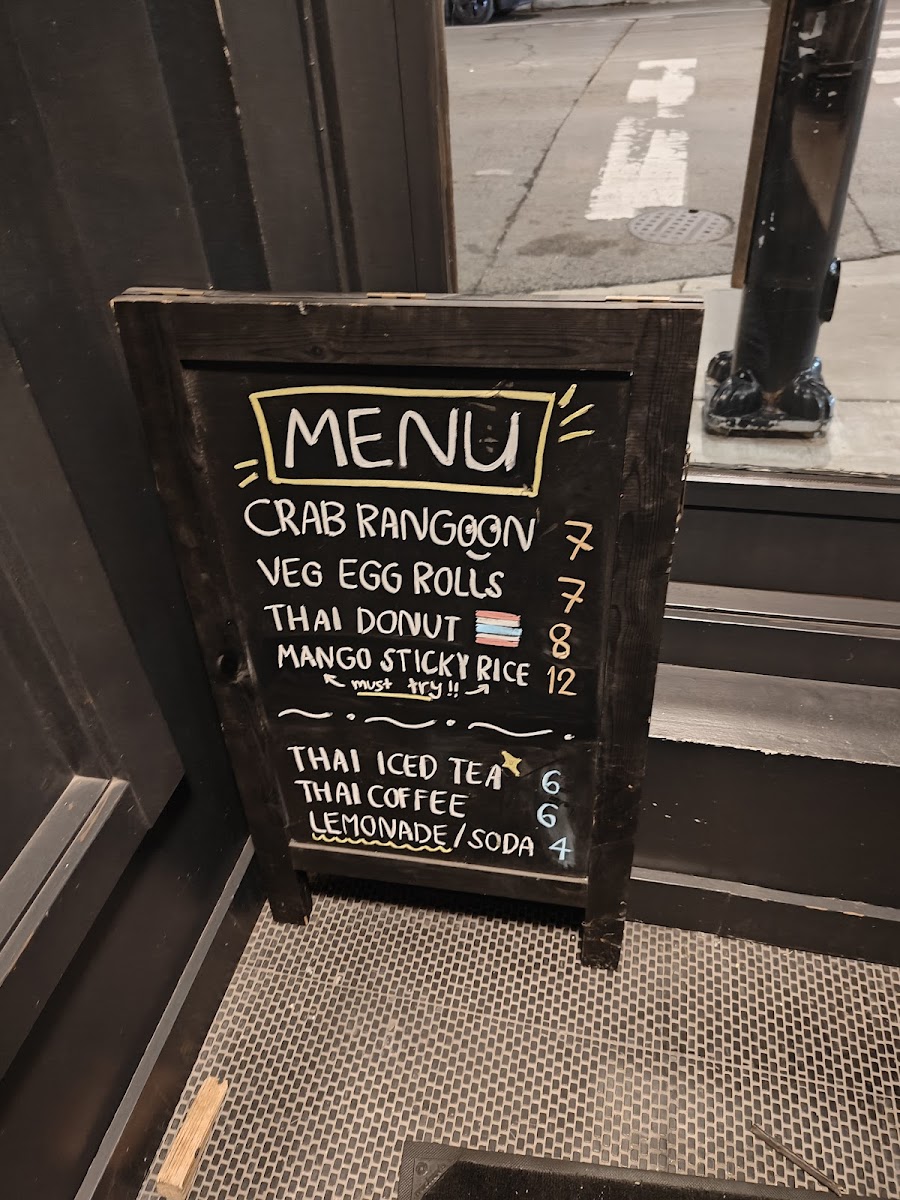 MENU
CRAB RANGOON 7
VEG EGG ROLLS 7
THAI DONUT 8
MANGO STICKY RICE 12
must try!!
THAI ICED TEA 6
THAI COFFEE 6
LEMONADE/SODA 4